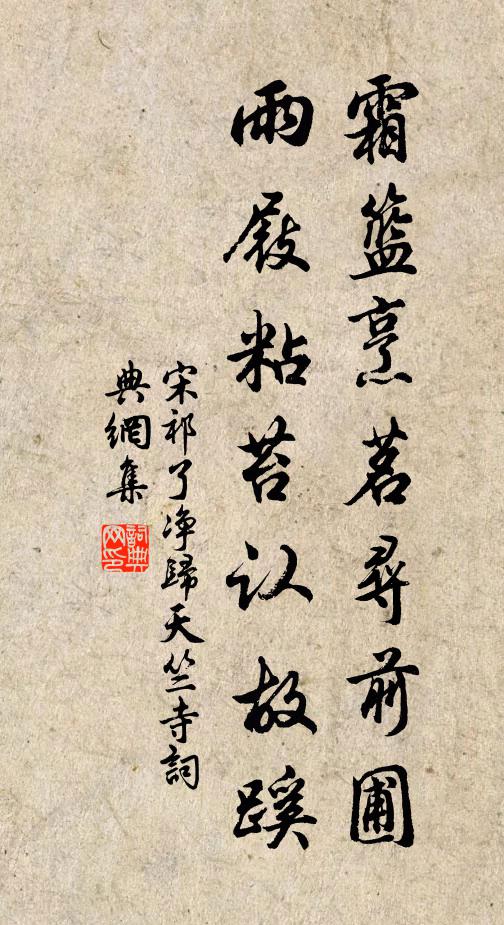 霜籃烹茗尋前圃
雨屐粘苔认故蹊
宋祁了净歸天竺寺詞
典網集
詞典网印